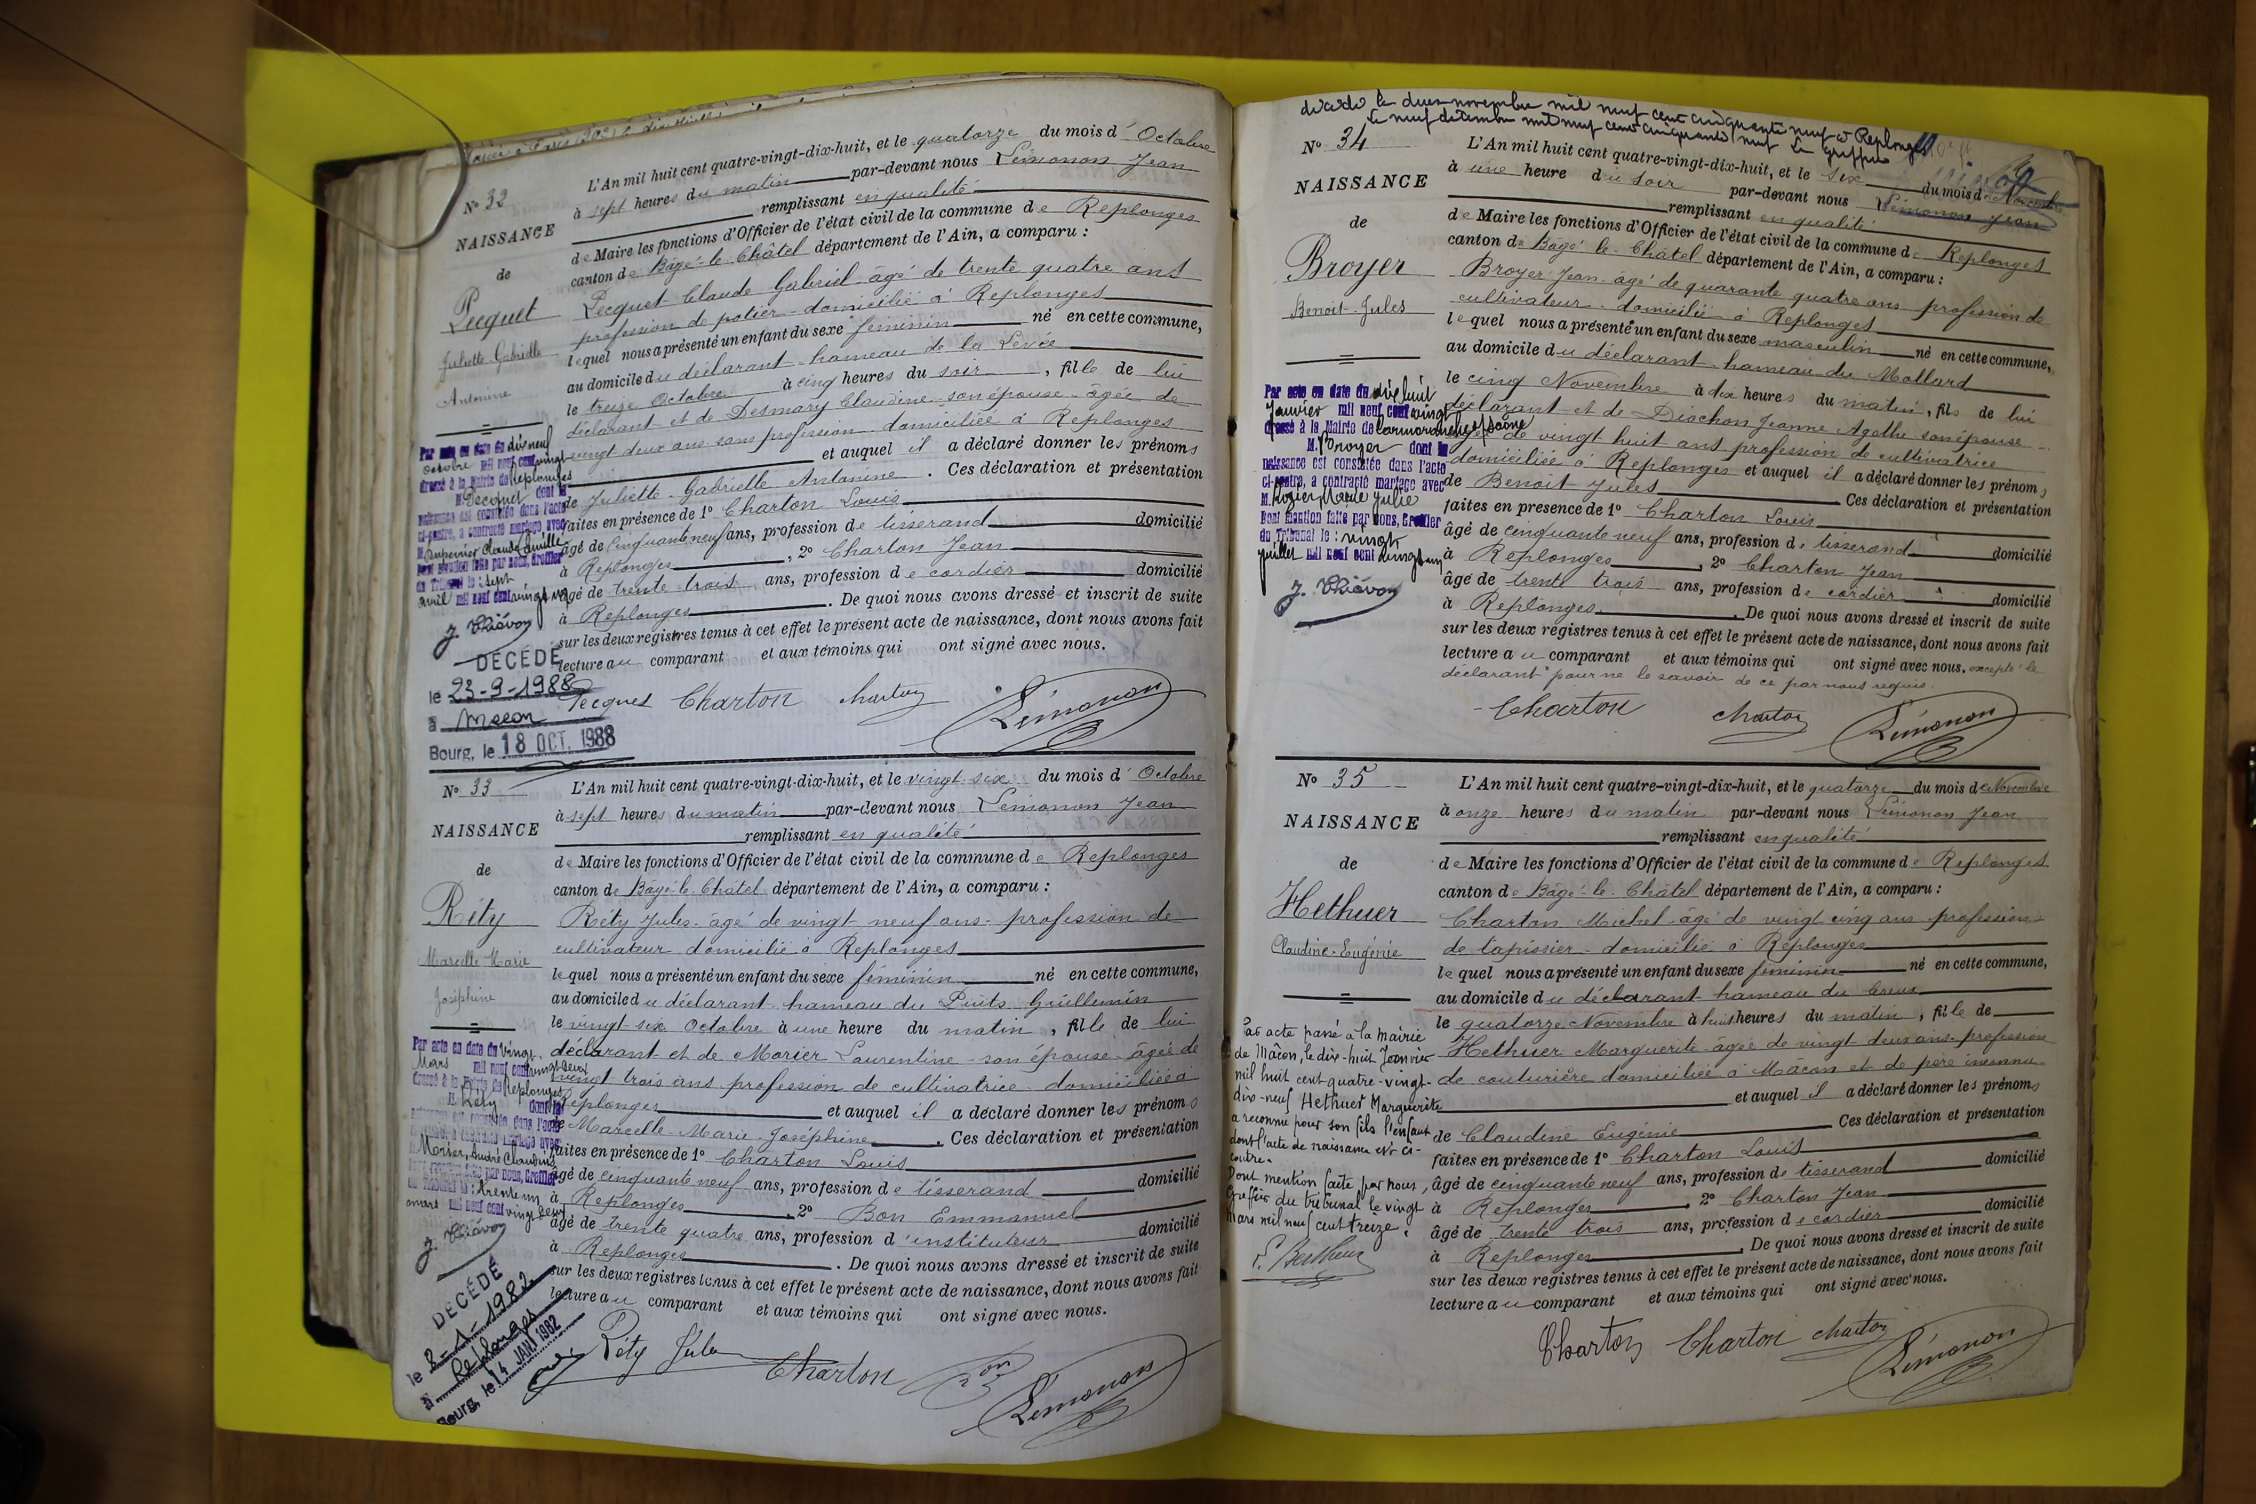 N° 32
NAISSANCE
de
Pecquet
Juliette Gabrielle
Antonine
L'An mil huit cent quatre-vingt-dix-huit, et le quatorze du mois d'Octobre
à sept heures du matin par-devant nous Lémonon Jean
remplissant en qualité
de Maire les fonctions d'Officier de l'état civil de la commune de Replonges
canton de Bâgé-le-Châtel département de l'Ain, a comparu :
Pecquet Claude Gabriel âgé de trente quatre ans
profession de potier domicilié à Replonges
lequel nous a présenté un enfant du sexe féminin né en cette commune,
au domicile du déclarant hameau de la Levée
le treize Octobre à cinq heures du soir, fille de lui
déclarant et de Desmary Claudine son épouse âgée de
vingt deux ans sans profession domiciliée à Replonges
et auquel il a déclaré donner les prénoms
de Juliette Gabrielle Antonine. Ces déclaration et présentation
faites en présence de 1° Charton Louis
âgé de cinquante neuf ans, profession de tisserand domicilié
à Replonges, 2° Charton Jean
âgé de trente trois ans, profession de cordier domicilié
à Replonges. De quoi nous avons dressé et inscrit de suite
sur les deux registres tenus à cet effet le présent acte de naissance, dont nous avons fait
lecture au comparant et aux témoins qui ont signé avec nous.
Charton Charton Lémonon
Par acte en date du dix neuf
octobre mil neuf cent vingt
dressé à la Mairie de Replonges
M Pecquet dont la
naissance est constatée dans l'acte
ci-contre, a contracté mariage avec
M Claude Camille
Dont mention faite par nous, Greffier
du Tribunal le : sept
avril mil neuf cent vingt un
DÉCÉDÉ
le 23-9-1988
à Macon
Bourg, le 18 OCT. 1988
N° 33
NAISSANCE
de
Réty
Marcelle Marie
Joséphine
L'An mil huit cent quatre-vingt-dix-huit, et le vingt-six du mois d'Octobre
à sept heures du matin par-devant nous Lémonon Jean
remplissant en qualité
de Maire les fonctions d'Officier de l'état civil de la commune de Replonges
canton de Bâgé-le-Châtel département de l'Ain, a comparu :
Réty Jules âgé de vingt neuf ans profession de
cultivateur domicilié à Replonges
lequel nous a présenté un enfant du sexe féminin né en cette commune,
au domicile du déclarant hameau du Puits Guillemin
le vingt-six Octobre à une heure du matin, fille de lui
déclarant et de Morier Laurentine son épouse âgée de
vingt trois ans profession de cultivatrice domiciliée à
Replonges et auquel il a déclaré donner les prénoms
de Marcelle-Marie-Joséphine. Ces déclaration et présentation
faites en présence de 1° Charton Louis
âgé de cinquante neuf ans, profession de tisserand domicilié
à Replonges, 2° Bon Emmanuel
âgé de trente quatre ans, profession d'instituteur domicilié
à Replonges. De quoi nous avons dressé et inscrit de suite
sur les deux registres tenus à cet effet le présent acte de naissance, dont nous avons fait
lecture au comparant et aux témoins qui ont signé avec nous.
Réty Jules Charton Bon Lémonon
Par acte en date du vingt
Mars mil neuf cent vingt deux
dressé à la Mairie de Replonges
M Réty dont la
naissance est constatée dans l'acte
ci-contre, a contracté mariage avec
M Morier, André Claudius
Dont mention faite par nous, Greffier
du Tribunal le : trente un
mars mil neuf cent vingt deux
DÉCÉDÉ
le 8-1-1982
à Replonges
Bourg, le 14 JAN 1982
décédé le deux novembre mil neuf cent cinquante neuf à Replonges
Le neuf décembre mil neuf cent cinquante neuf Le greffier
N° 34
NAISSANCE
de
Broyer
Benoit-Jules
L'An mil huit cent quatre-vingt-dix-huit, et le six du mois de Novembre
à une heure du soir par-devant nous Lémonon Jean
remplissant en qualité
de Maire les fonctions d'Officier de l'état civil de la commune de Replonges
canton de Bâgé-le-Châtel département de l'Ain, a comparu :
Broyer Jean âgé de quarante quatre ans profession de
cultivateur domicilié à Replonges
lequel nous a présenté un enfant du sexe masculin né en cette commune,
au domicile du déclarant hameau du Mollard
le cinq Novembre à dix heures du matin, fils de lui
déclarant et de Diochon Jeanne Agathe son épouse
âgée de vingt huit ans profession de cultivatrice
domiciliée à Replonges et auquel il a déclaré donner les prénoms
de Benoit Jules Ces déclaration et présentation
faites en présence de 1° Charton Louis
âgé de cinquante neuf ans, profession de tisserand domicilié
à Replonges, 2° Charton Jean
âgé de trente trois ans, profession de cordier domicilié
à Replonges. De quoi nous avons dressé et inscrit de suite
sur les deux registres tenus à cet effet le présent acte de naissance, dont nous avons fait
lecture au comparant et aux témoins qui ont signé avec nous, excepté le
déclarant pour ne le savoir de ce par nous requis.
Charton Charton Lémonon
Par acte en date du dix huit
Janvier mil neuf cent vingt
dressé à la Mairie de Cormoranche s/ Saône
M. Broyer dont la
naissance est constatée dans l'acte
ci-contre, a contracté mariage avec
M. Rozier Marie Julie
Dont mention faite par nous, Greffier
du Tribunal le : vingt
juillet mil neuf cent vingt un
N° 35
NAISSANCE
de
Hethuer
Claudine-Eugénie
L'An mil huit cent quatre-vingt-dix-huit, et le quatorze du mois de Novembre
à onze heures du matin par-devant nous Lémonon Jean
remplissant en qualité
de Maire les fonctions d'Officier de l'état civil de la commune de Replonges
canton de Bâgé-le-Châtel département de l'Ain, a comparu :
Charton Michel âgé de vingt cinq ans profession
de tapissier domicilié à Replonges
lequel nous a présenté un enfant du sexe féminin né en cette commune,
au domicile du déclarant hameau du Creux
le quatorze Novembre à huit heures du matin, fille de
Hethuer Marguerite âgée de vingt deux ans profession
de couturière domiciliée à Mâcon et de père inconnu
et auquel il a déclaré donner les prénoms
de Claudine Eugénie Ces déclaration et présentation
faites en présence de 1° Charton Louis
âgé de cinquante neuf ans, profession de tisserand domicilié
à Replonges. 2° Charton Jean
âgé de trente trois ans, profession de cordier domicilié
à Replonges. De quoi nous avons dressé et inscrit de suite
sur les deux registres tenus à cet effet le présent acte de naissance, dont nous avons fait
lecture au comparant et aux témoins qui ont signé avec nous.
Charton Charton Charton Lémonon
Par acte passé à la mairie
de Mâcon, le dix-huit Janvier
mil huit cent quatre-vingt-
dix-neuf Hethuer Marguerite
a reconnu pour son fils l'enfant
dont l'acte de naissance est ci-
contre.
Dont mention faite par nous,
Greffier du tribunal le vingt
Mars mil neuf cent treize.